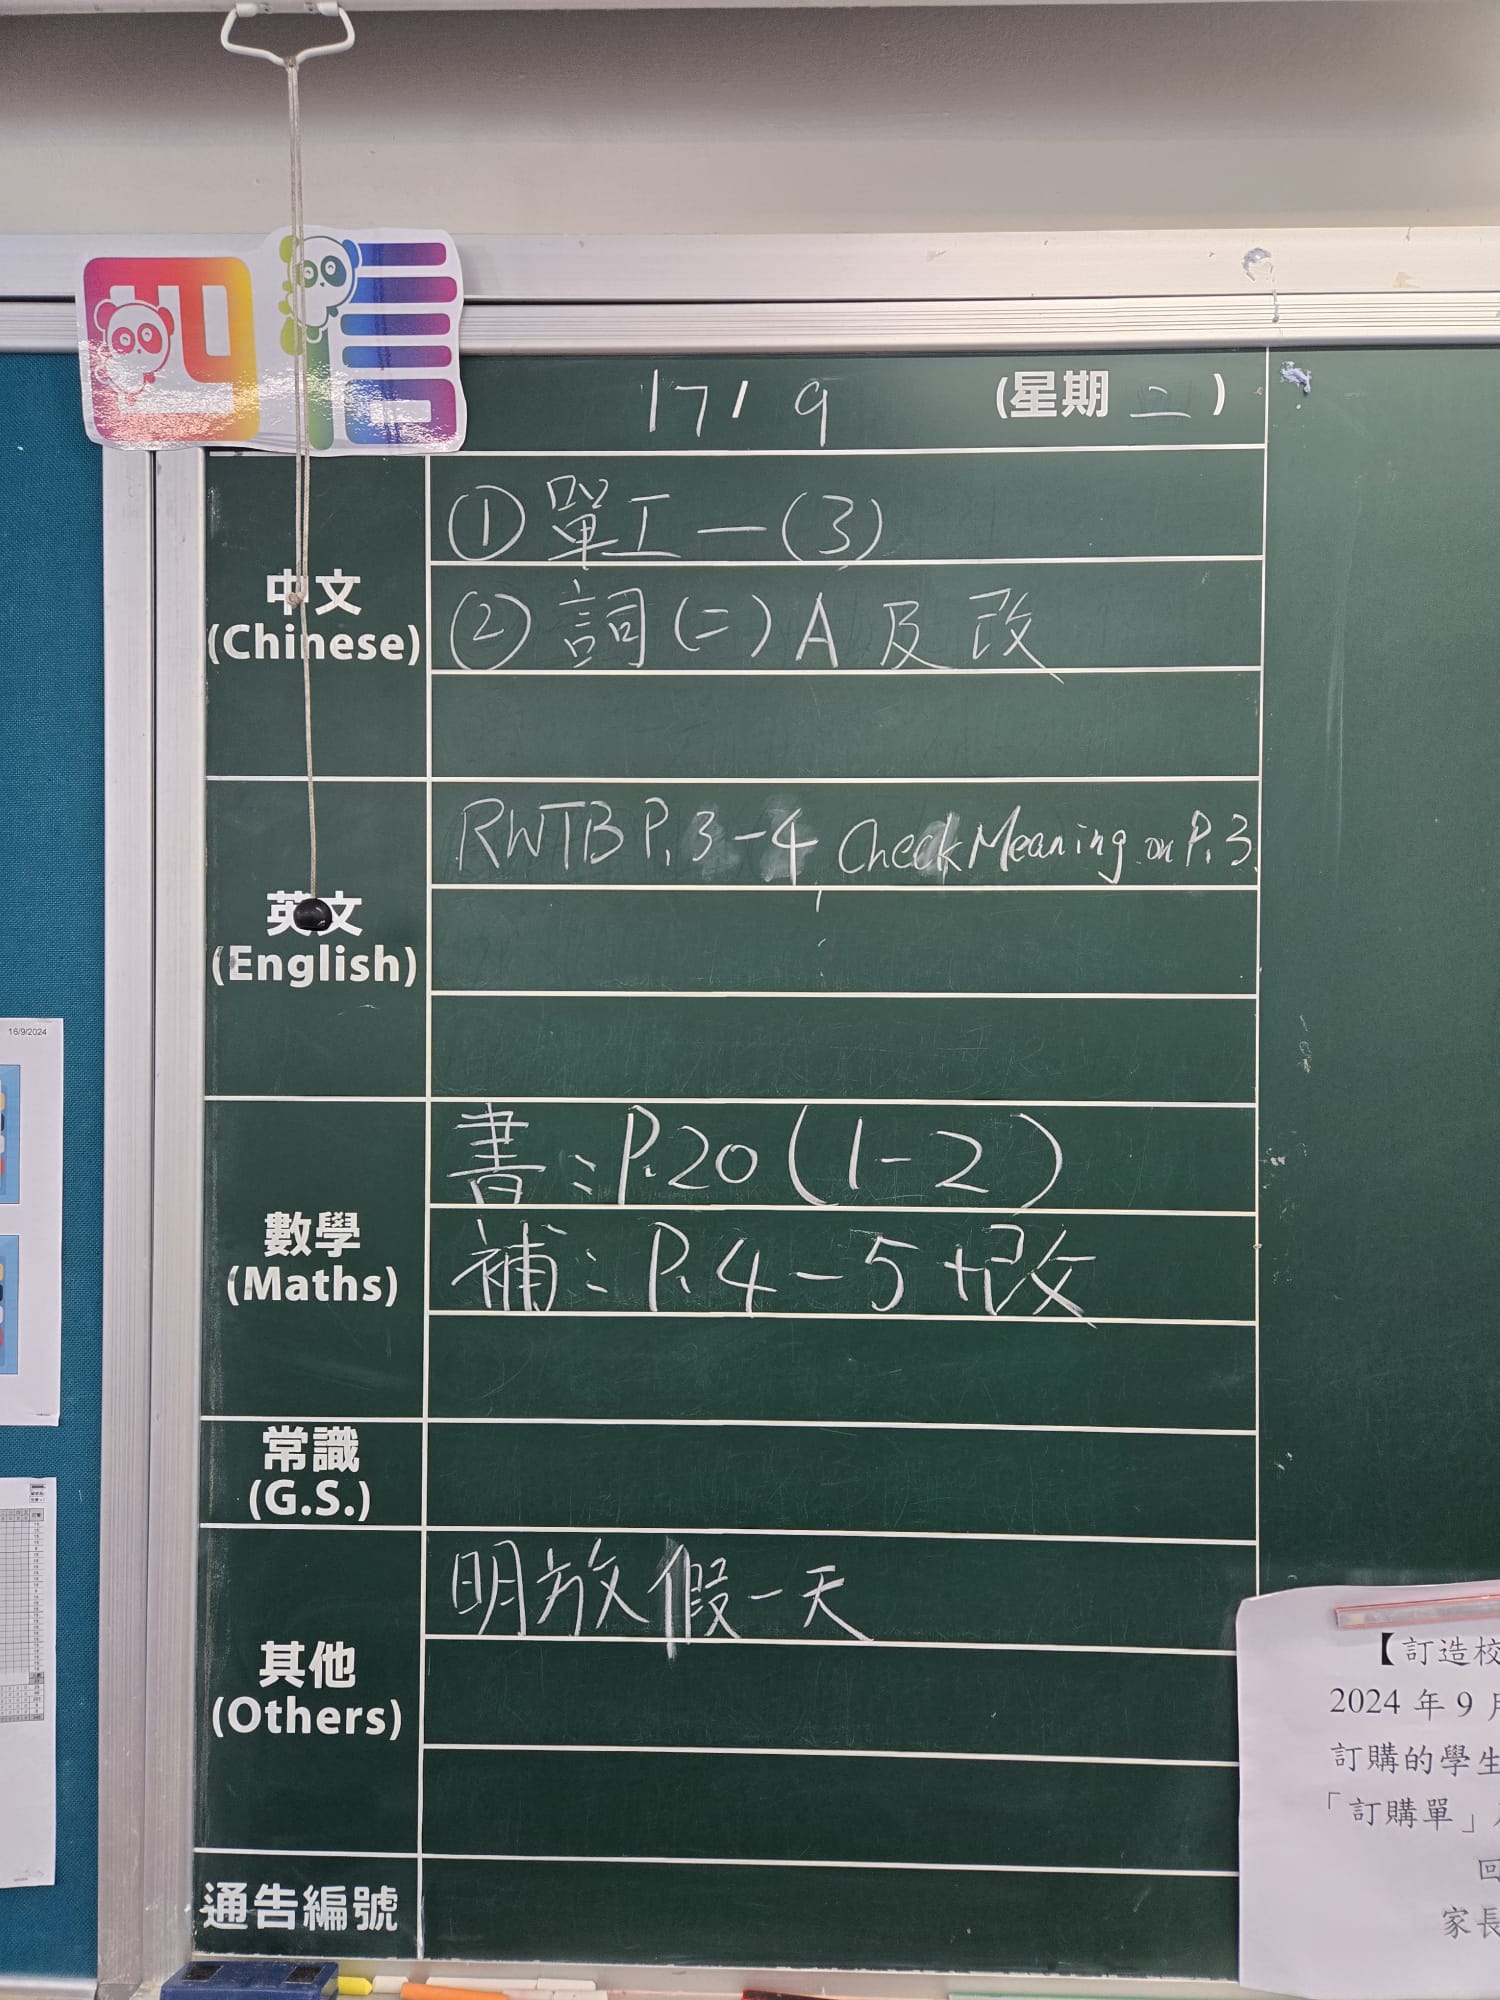 四信
17/9 (星期二)
中文
(Chinese)
① 單工一(3)
② 詞(二) A 及改
英文
(English)
RWTB P.3-4 Check Meaning on P.3
數學
(Maths)
書: P.20 (1-2)
補: P.4-5 + 改
常識
(G.S.)
其他
(Others)
明放假一天
通告編號
16/9/2024
【訂造校
2024 年 9 月
訂購的學生
「訂購單」
回
家長